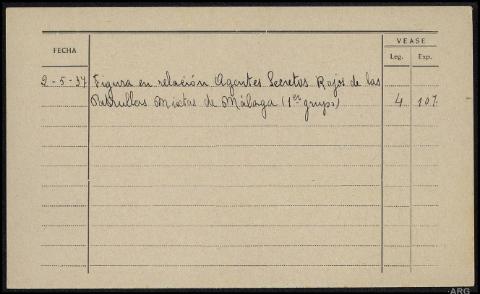 VEASE
FECHA
Leg. Exp.
2-5-37 Figura en relación Agentes Secretos Rojos de las
Patrullas Mixtas de Málaga (1er grupo) 4 107
ARG